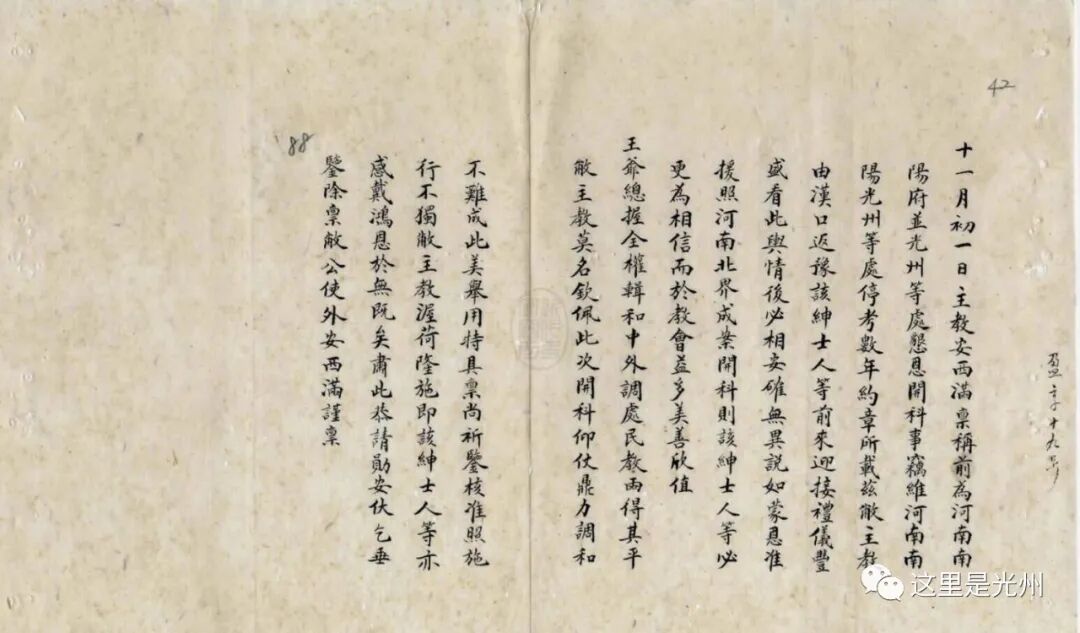 42
盈字十九号
十一月初一日主教安西滿稟稱前為河南南
陽府並光州等處懇恩開科事竊維河南南
陽光州等處停考數年約章所載茲敝主教
由漢口返豫該紳士人等前來迎接禮儀豐
盛看此輿情後必相安確無異説如蒙恩准
援照河南北界成案開科則該紳士人等必
更為相信而於教會益多美善欣值
王爺總握全權輯和中外調處民教兩得其平
敝主教莫名欽佩此次開科仰仗鼎力調和
不難成此美舉用特具稟尚祈鑒核准照施
行不獨敝主教渥荷隆施即該紳士人等亦
感戴鴻恩於無既矣肅此恭請勛安伏乞垂
鑒除稟敝公使外安西滿謹稟
'88
这里是光州